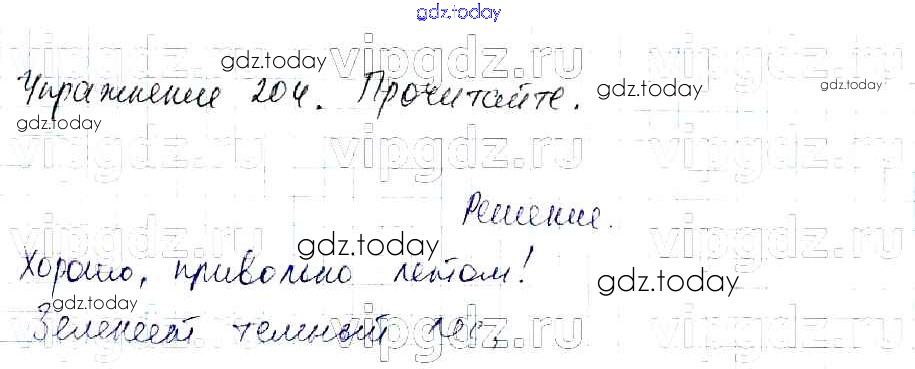 gdz.today
vipgdz.ru vipgdz.ru
gdz.today
Упражнение 204. Прочитайте. gdz.today gdz.today
gdz.today
vipgdz.ru vipgdz.ru
Решение.
vipgdz.ru gdz.today vipgdz.ru
Хорошо, привольно летом! gdz.today
gdz.today
Зеленеет темный лес,
vipgdz.ru vipgdz.ru